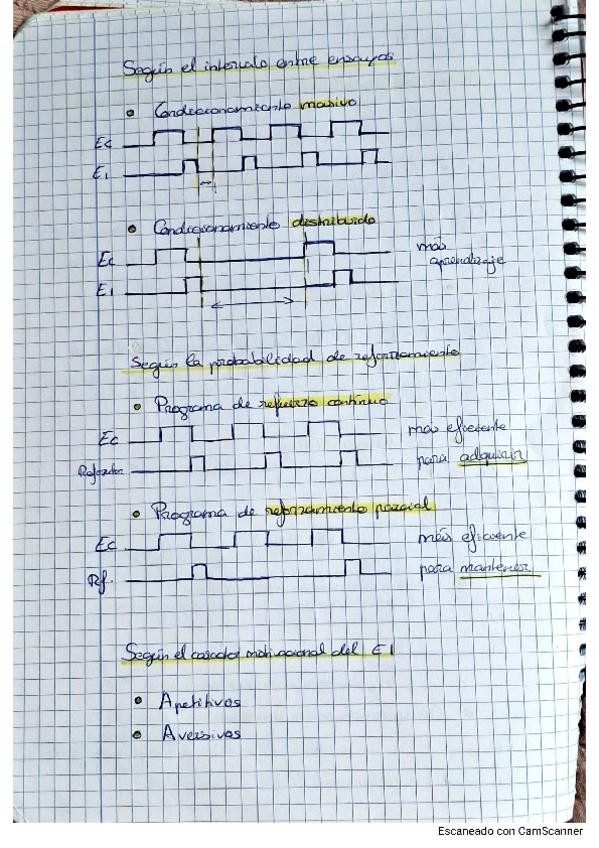 Según el intervalo entre ensayos
• Condicionamiento masivo
EC
EI
• Condicionamiento distribuido
EC
EI
más
aprendizaje
Según la probabilidad de reforzamiento
• Programa de refuerzo continuo
EC
más eficiente
Reforzador
para adquirir
• Programa de reforzamiento parcial
EC
más eficiente
Rf.
para mantener
Según el carácter motivacional del EI
• Apetitivos
• Aversivos
Escaneado con CamScanner